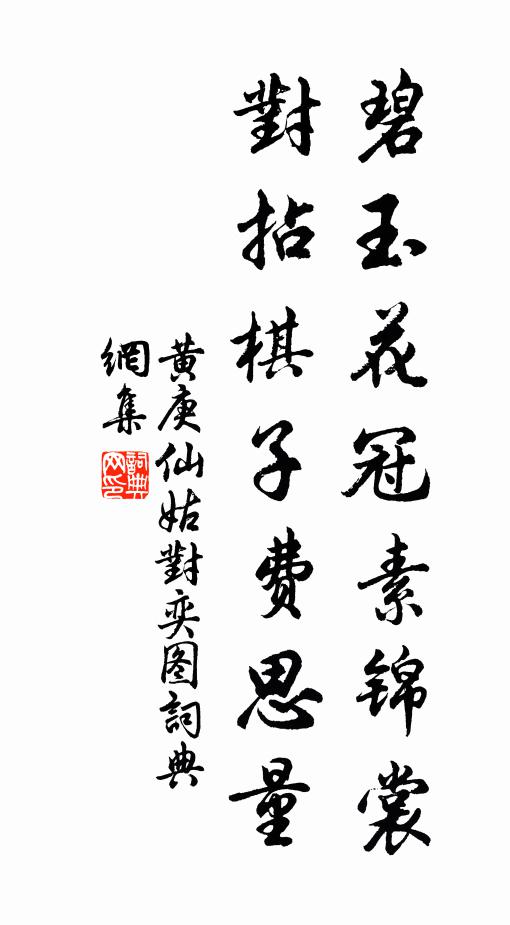 碧玉花冠素锦裳
對拈棋子费思量
黄庚仙姑對奕图詞典
網集
詞典网印